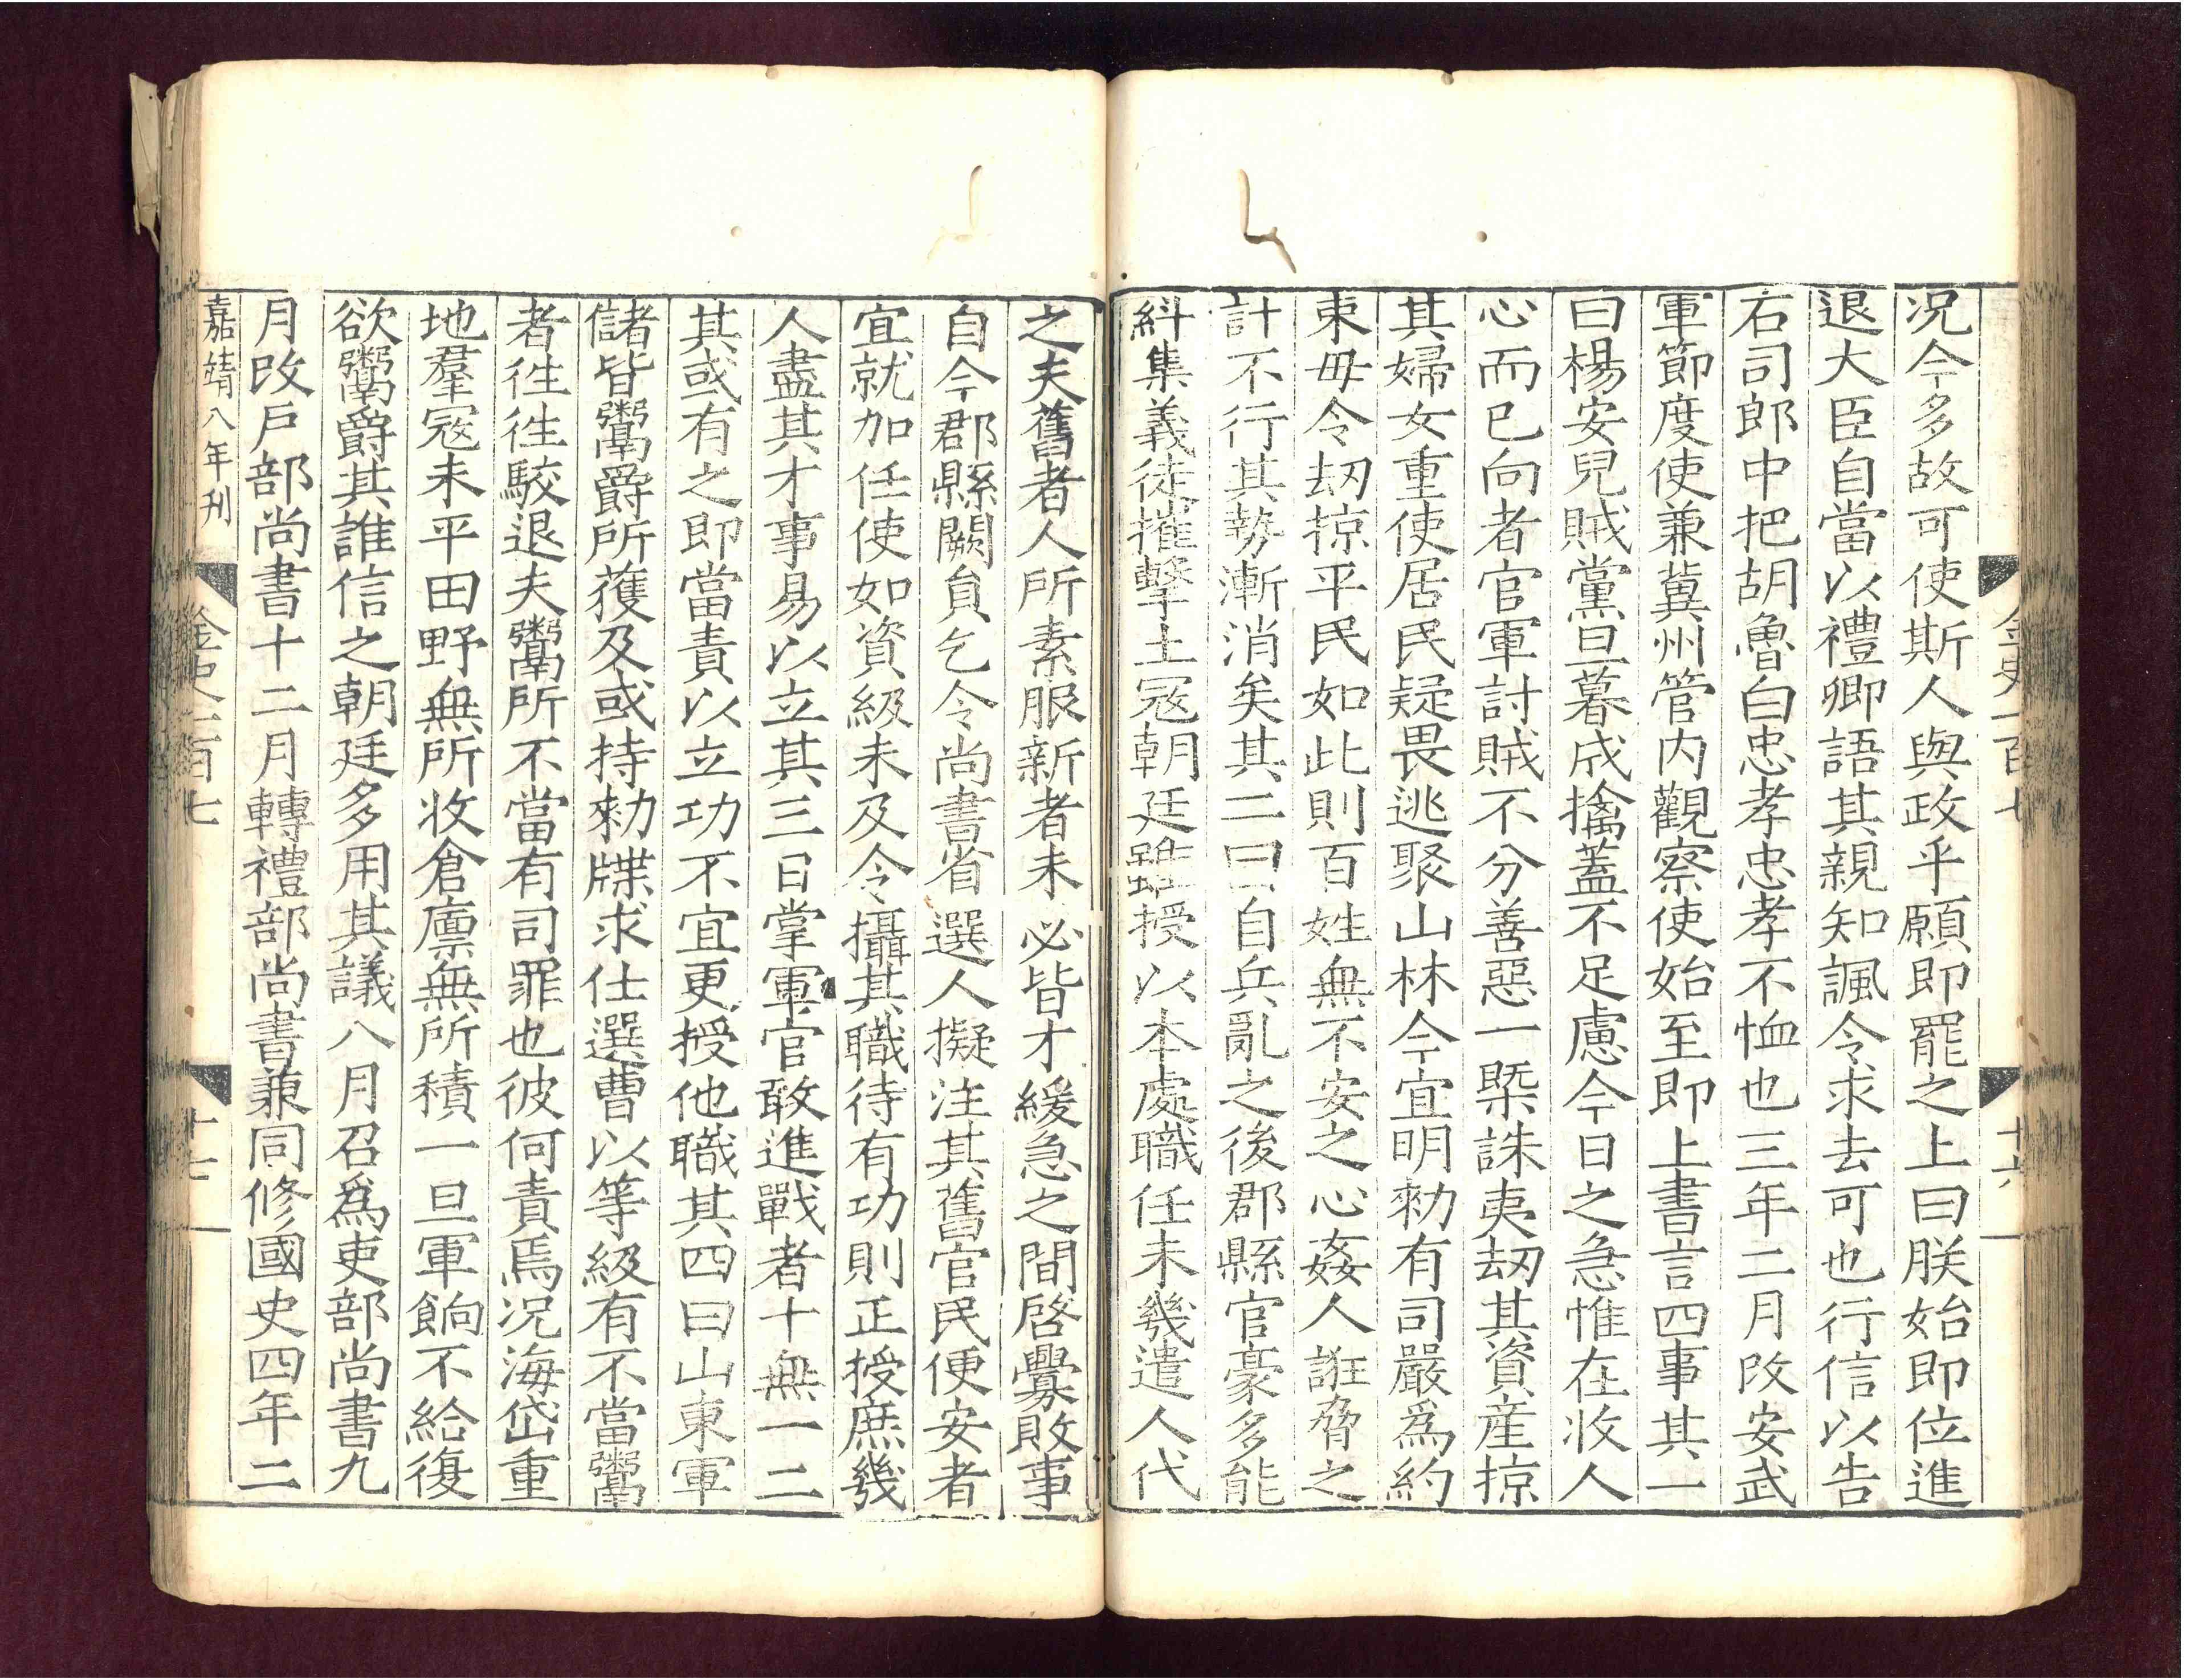 金史一百七
十六
况今多故可使斯人與政乎願即罷之上曰朕始即位進
退大臣自當以禮卿語其親知諷令求去可也行信以告
右司郎中把胡魯白忠孝忠孝不恤也三年二月改安武
軍節度使兼冀州管内觀察使始至即上書言四事其一
曰楊安兒賊黨旦暮成擒蓋不足慮今日之急惟在收人
心而已向者官軍討賊不分善惡一槩誅夷劫其資産掠
其婦女重使居民疑畏逃聚山林今宜明勑有司嚴爲約
束毋令刼掠平民如此則百姓無不安之心姦人誑脅之
計不行其勢漸消矣其二曰自兵亂之後郡縣官豪多能
紏集義徒摧擊土冦朝廷雖授以本處職任未幾遣人代
之夫舊者人所素服新者未必皆才緩急之間啓釁敗事
自今郡縣闕貟乞令尚書省選人擬注其舊官民便安者
宜就加任使如資級未及令攝其職待有功則正授庶幾
人盡其才事易以立其三曰掌軍官敢進戰者十無一二
其或有之即當責以立功不宜更授他職其四曰山東軍
儲皆鬻爵所獲及或持勑牒求仕選曹以等級有不當鬻
者徃徃駮退夫鬻所不當有司罪也彼何責焉况海岱重
地羣冦未平田野無所收倉廪無所積一旦軍餉不給復
欲鬻爵其誰信之朝廷多用其議八月召爲吏部尚書九
月改戶部尚書十二月轉禮部尚書兼同修國史四年二
嘉靖八年刊
金史一百七
十七